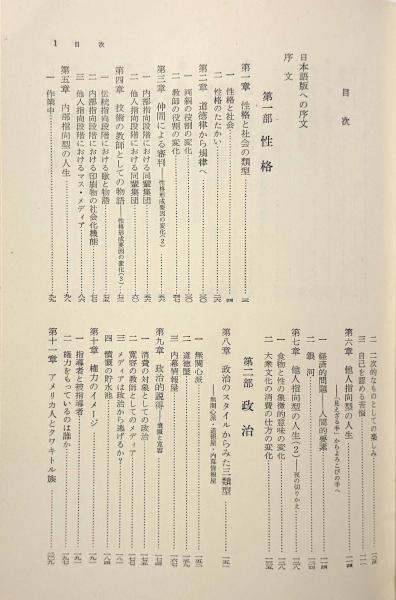 1 目次
目次
日本語版への序文
序文
第一部 性格
第一章 性格と社会の類型
一 性格と社会
二 性格のたたかい
第二章 道徳律から規律へ
一 両親の役割の変化
二 教師の役割の変化
第三章 仲間による審判──性格形成要因の変化(2)
一 内部指向段階における同輩集団
二 他人指向段階における同輩集団
第四章 技術の教師としての物語──性格形成要因の変化(3)
一 伝統指向段階における歌と物語
二 内部指向段階における印刷物の社会化機能
三 他人指向段階におけるマス・メディア
第五章 内部指向型の人生
一 作業中
二 二次的なものとしての楽しみ
三 自己を認める苦悩
第六章 他人指向型の人生──「見えざる手」からよろこびの手へ
一 経済的問題──人間的要素
二 銀河
第七章 他人指向型の人生(2)──夜の切りかえ
一 食物と性の象徴的意味の変化
二 大衆文化の消費の仕方の変化
第二部 政治
第八章 政治のスタイルからみた三類型──無関心派・道徳屋・内幕情報屋
一 無関心派
二 道徳屋
三 内幕情報屋
第九章 政治的説得──憤慨と寛容
一 消費の対象としての政治
二 寛容の教師としてのメディア
三 メディアは政治から逃げるか?
四 憤慨の貯水池
第十章 権力のイメージ
一 指導者と被指導者
二 権力をもっているのは誰か
第十一章 アメリカ人とクワキトル族